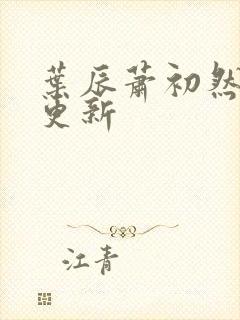 葉辰蕭初然
更新
江青